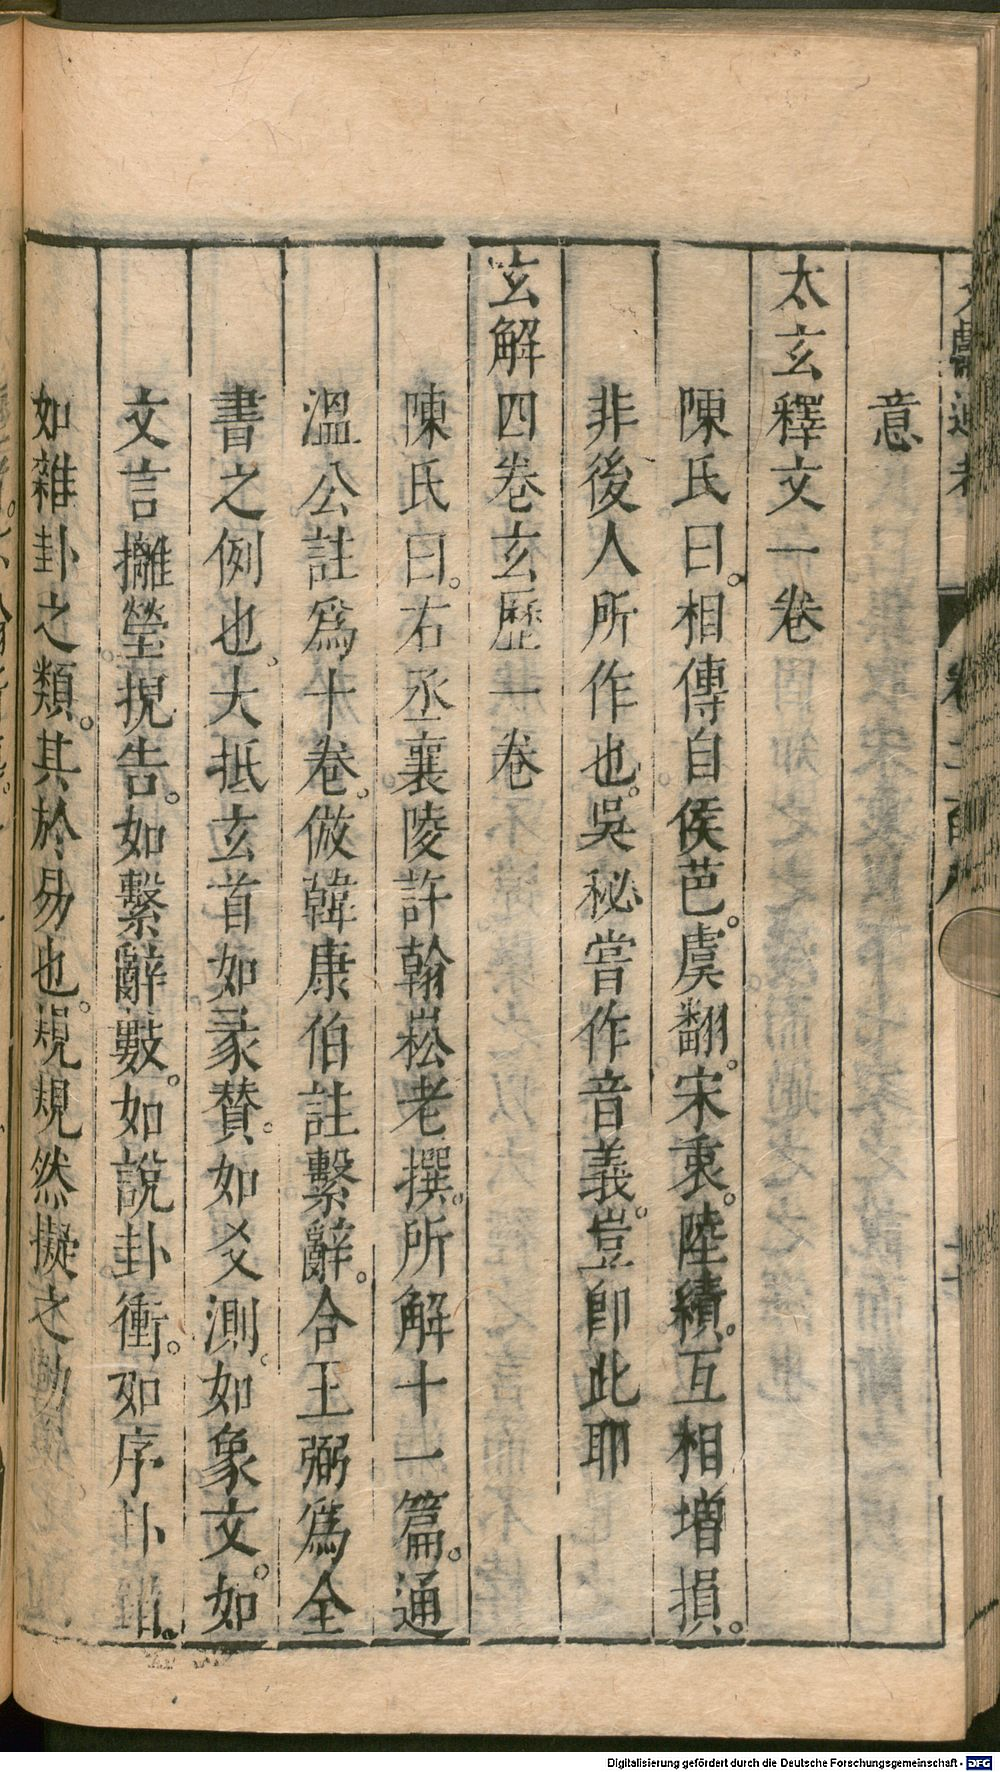 意
太玄釋文一卷
陳氏曰。相傳自侯芭。虞翻。宋衷。陸績。互相增損。
非後人所作也。吳秘嘗作音義。豈卽此耶
玄解四卷玄歷一卷
陳氏曰。右丞襄陵許翰崧老撰。所解十一篇。通
溫公註爲十卷。倣韓康伯註繫辭。合王弼爲全
書之例也。大抵玄首如彖。贊。如爻。測。如象文。如
文言攡瑩掜告。如繫辭數。如說卦衝。如序卦錯。
如雜卦之類。其於易也。規規然擬之
Digitalisierung gefördert durch die Deutsche Forschungsgemeinschaft - DFG